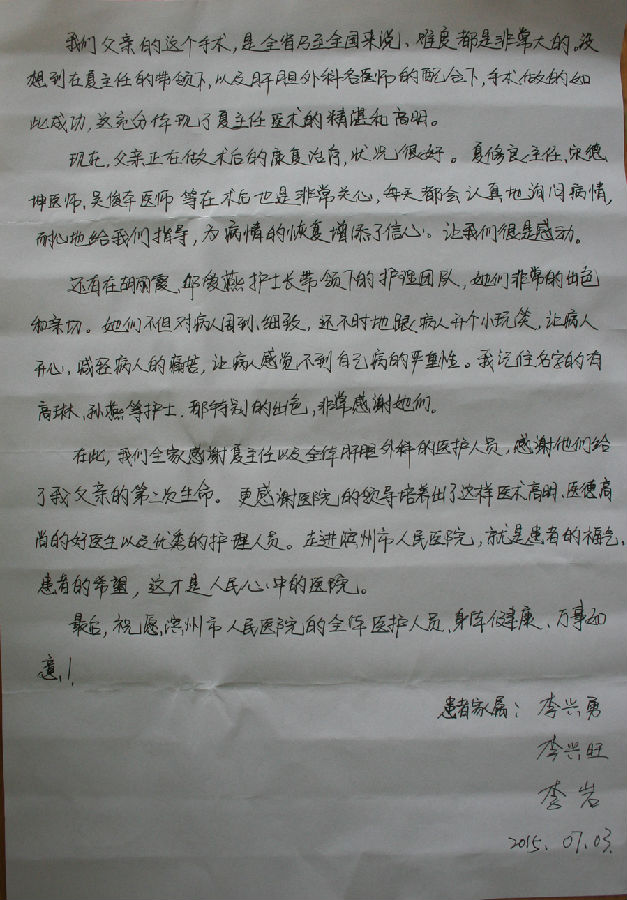 我们父亲的这个手术，是全省乃至全国来说、难度都是非常大的。没
想到在夏主任的带领下，以及肝胆外科各医师的配合下，手术做的如
此成功，这充分体现了夏主任医术的精湛和高明。
现在，父亲正在做术后的康复治疗，状况很好。夏修良主任、宋德
坤医师、吴俊车医师等在术后也是非常关心，每天都会认真地询问病情，
耐心地给我们指导，为病情的恢复增添了信心。让我们很是感动。
还有在胡丽霞、邹爱燕护士长带领下的护理团队，她们非常的出色
和亲切。她们不但对病人周到、细致，还不时地跟病人开个小玩笑，让病人
开心，减轻病人的痛苦，让病人感觉不到自己病的严重性。我记住名字的有
高琳、孙燕等护士．都特别的出色，非常感谢她们。
在此，我们全家感谢夏主任以及全体肝胆外科的医护人员，感谢他们给
了我父亲的第二次生命。更感谢医院的领导培养出了这样医术高明、医德高
尚的好医生以及优秀的护理人员。走进滨州市人民医院，就是患者的福气，
患者的希望，这才是人民心中的医院。
最后，祝愿滨州市人民医院的全体医护人员、身体健康、万事如
意！
患者家属：李兴勇
李兴旺
李岩
2015.07.03.